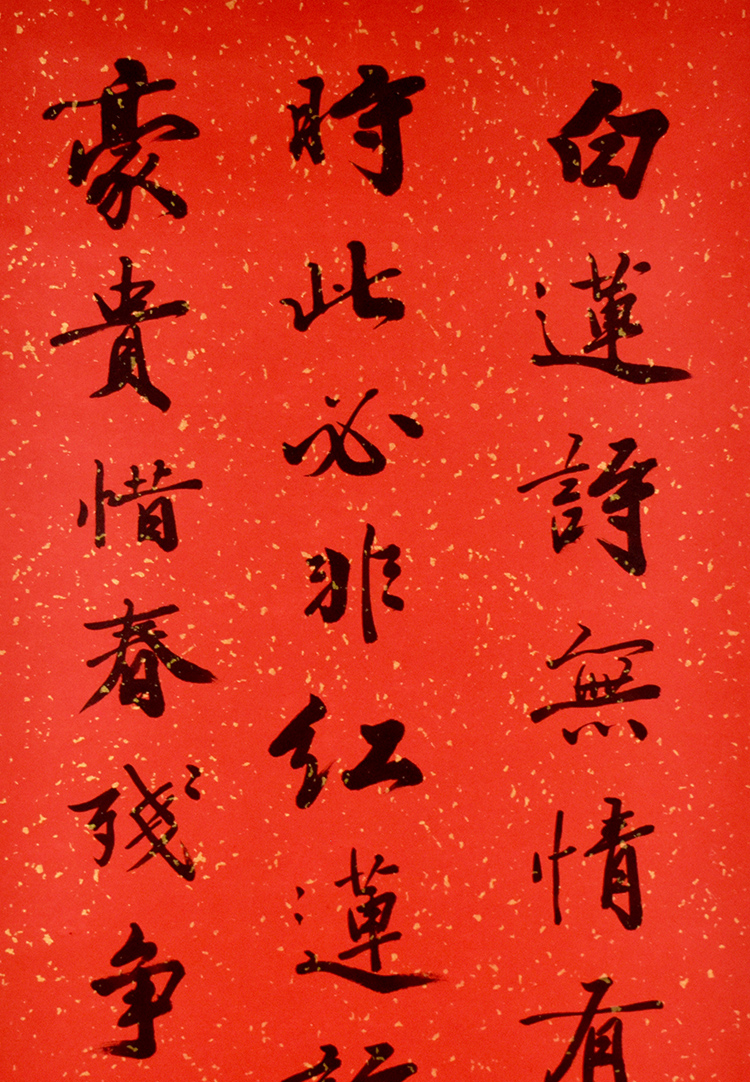 白蓮詩無情有
時此必非紅蓮詩
豪貴惜春残争